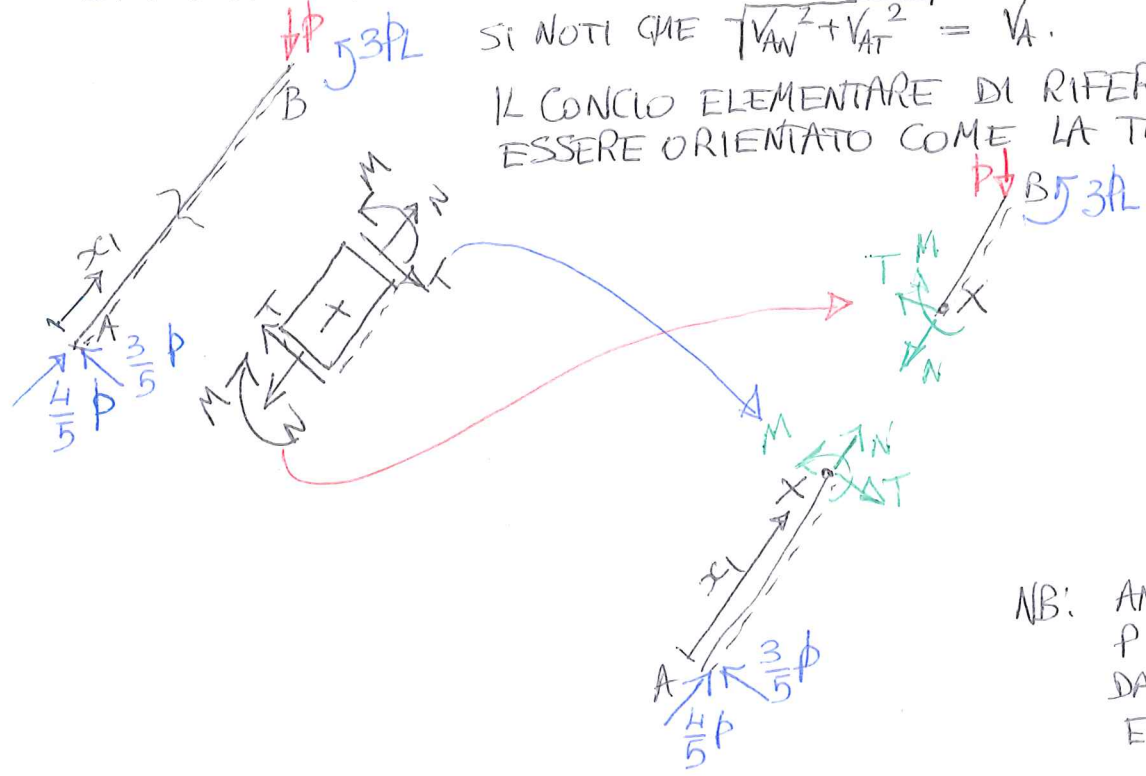 SI NOTI CHE √VAN² + VAT² = VA.
IL CONCIO ELEMENTARE DI RIFER
ESSERE ORIENTATO COME LA T
P
3PL
B
x1
A
4/5 P
3/5 P
M
N
T
X
T
M
N
P
B
3PL
M
T
X
N
M
N
X
T
x1
A
3/5 P
4/5 P
NB: AN
P
DA
E